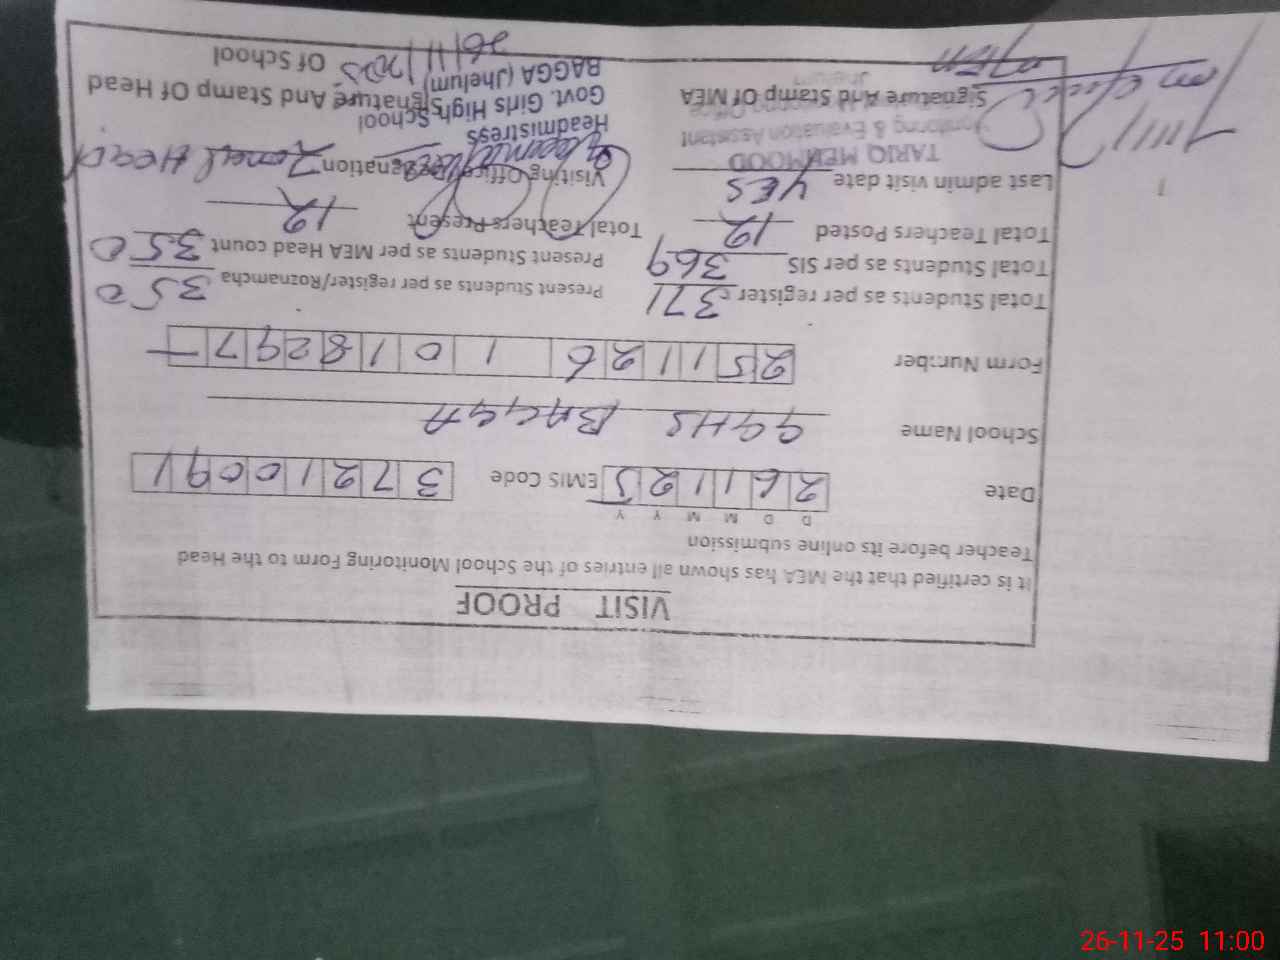 VISIT PROOF
It is certified that the MEA has shown all entries of the School Monitoring Form to the Head
Teacher before its online submission
D D M M Y Y
Date 261125 EMIS Code 37210091
School Name GGHS BAGGA
Form Number 251126 1018297
Total Students as per register 371 Present Students as per register/Roznamcha 350
Total Students as per SIS 369 Present Students as per MEA Head count 350
Total Teachers Posted 12 Total Teachers Present 12
Last admin visit date YES Visiting Officer Designation Zonal Head
TARIQ MEHMOOD
Monitoring & Evaluation Assistant
Signature And Stamp Of MEA Signature And Stamp Of Head
Of School
Headmistress
Govt. Girls High School
BAGGA (Jhelum)
26/11/2025
26-11-25 11:00